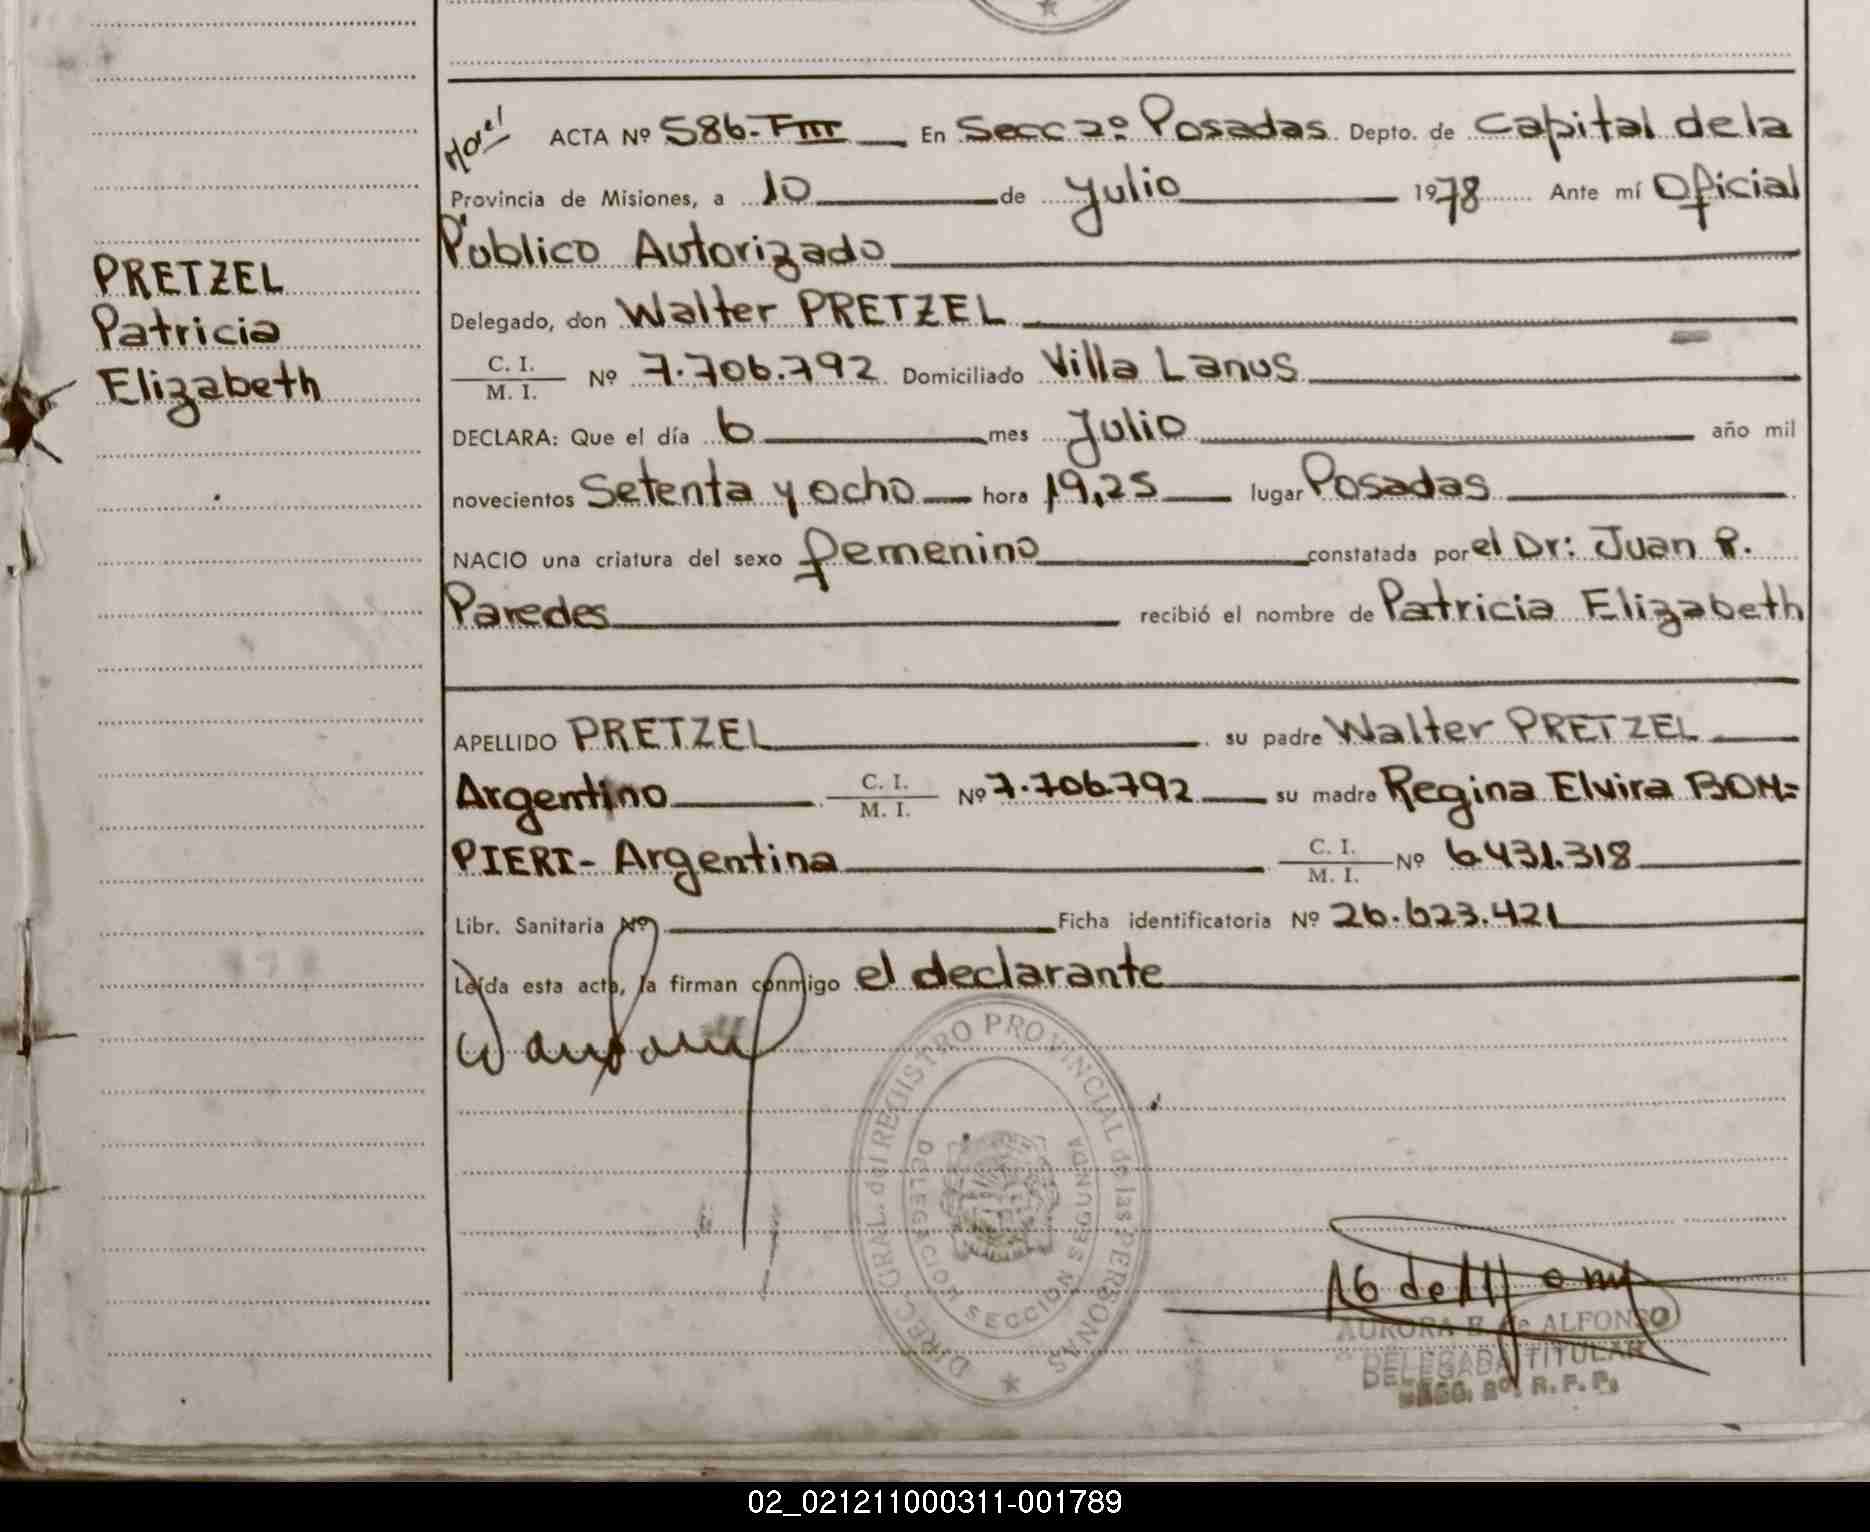 PRETZEL
Patricia
Elizabeth
ACTA Nº 586-TIII En Secc 2º Posadas Depto. de Capital de la
Provincia de Misiones, a 10 de Julio 1978 Ante mí Oficial
Público Autorizado
Delegado, don Walter PRETZEL
C. I.
M. I. Nº 7.706.792 Domiciliado Villa Lanus
DECLARA: Que el día 6 mes Julio año mil
novecientos Setenta y ocho hora 19,25 lugar Posadas
NACIO una criatura del sexo femenino constatada por el Dr: Juan R.
Paredes recibió el nombre de Patricia Elizabeth
APELLIDO PRETZEL su padre Walter PRETZEL
Argentino C. I.
M. I. Nº 7.706.792 su madre Regina Elvira BOM=
PIERI- Argentina C. I.
M. I. Nº 6.431.318
Libr. Sanitaria Nº Ficha identificatoria Nº 26.623.421
Leída esta acta, la firman conmigo el declarante
DIREC. GRAL. del REGISTRO PROVINCIAL de las PERSONAS
DELEGACION SECCION SEGUNDA
AURORA B. de ALFONSO
DELEGADA TITULAR
SECC. 2º. R. P. P.
02_021211000311-001789